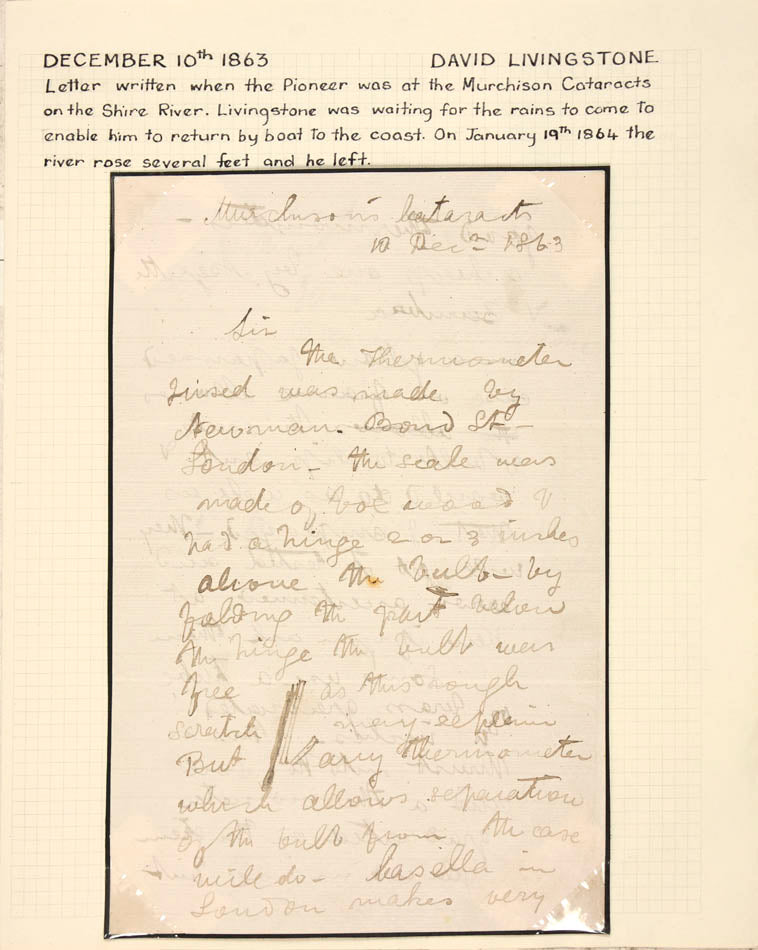 DECEMBER 10th 1863 DAVID LIVINGSTONE
Letter written when the Pioneer was at the Murchison Cataracts
on the Shire River. Livingstone was waiting for the rains to come to
enable him to return by boat to the coast. On January 19th 1864 the
river rose several feet and he left.
Murchison's Cataracts
10 Decr 1863
Sir
The Thermometer
I used was made by
Newman. Bond St
London - the scale was
made of box wood &
had a hinge 2 or 3 inches
above the bulb - by
folding the part below
the hinge the bulb was
free as this rough
scratch may explain
But any thermometer
which allows separation
of the bulb from the case
will do - Casella in
London makes very